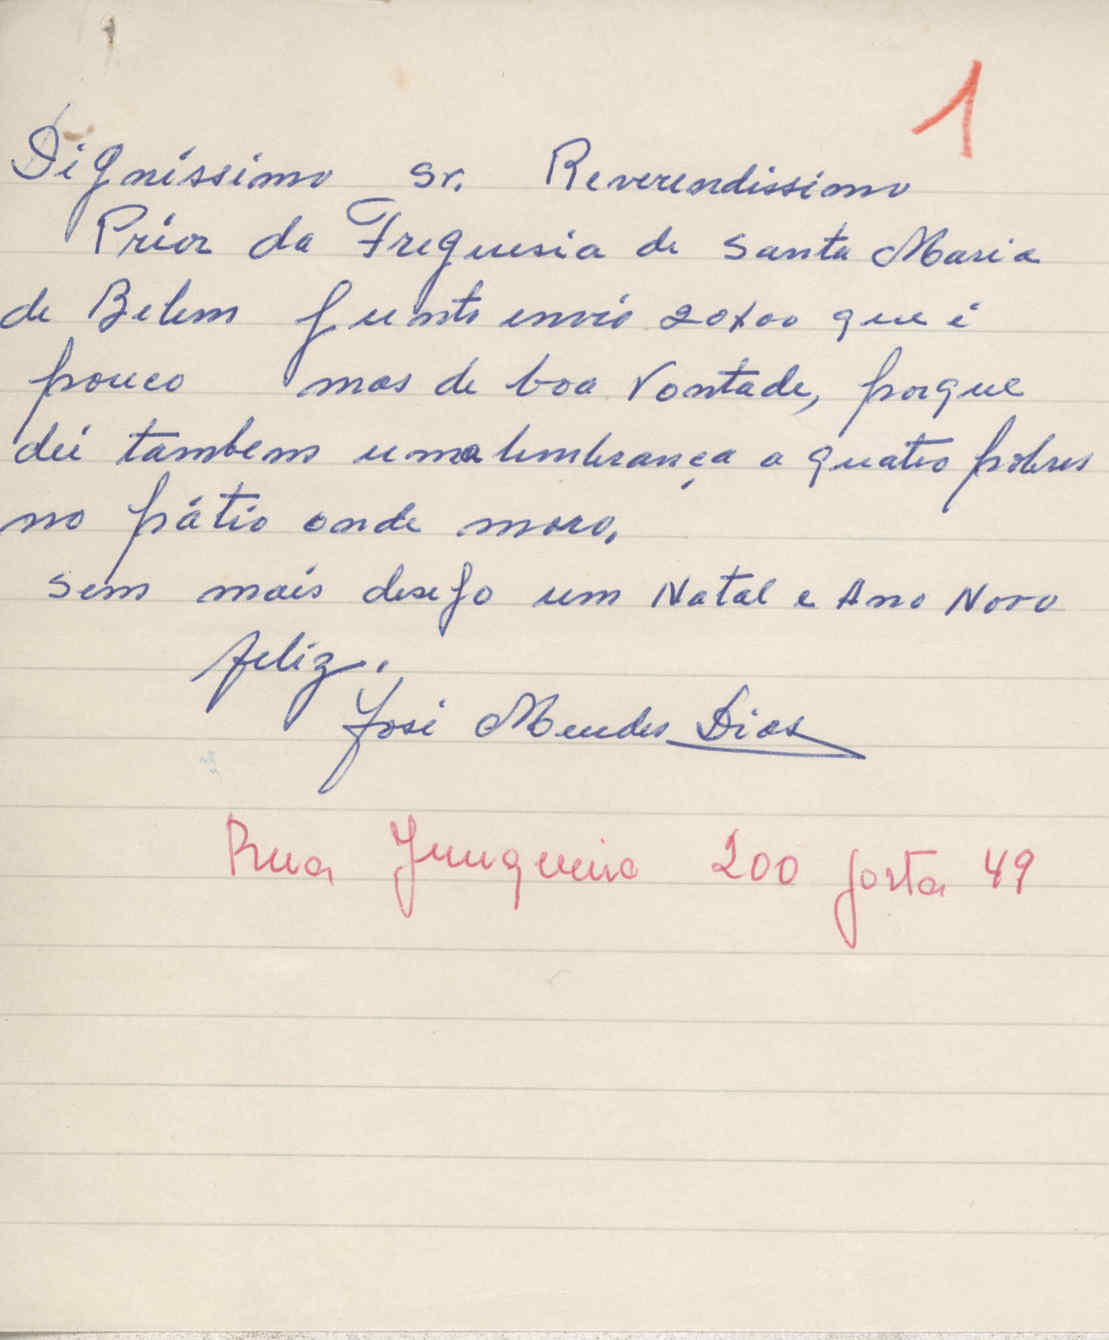 1
Digníssimo Sr. Reverendissimo
Prior da Freguesia de Santa Maria
de Belem Junto envio 20$00 que é
pouco mas de boa vontade, porque
dei tambem uma lembrança a quatro pobres
no pátio onde moro.
Sem mais desejo um Natal e Ano Novo
feliz.
José Mendes Dias
Rua Junqueira 200 porta 49